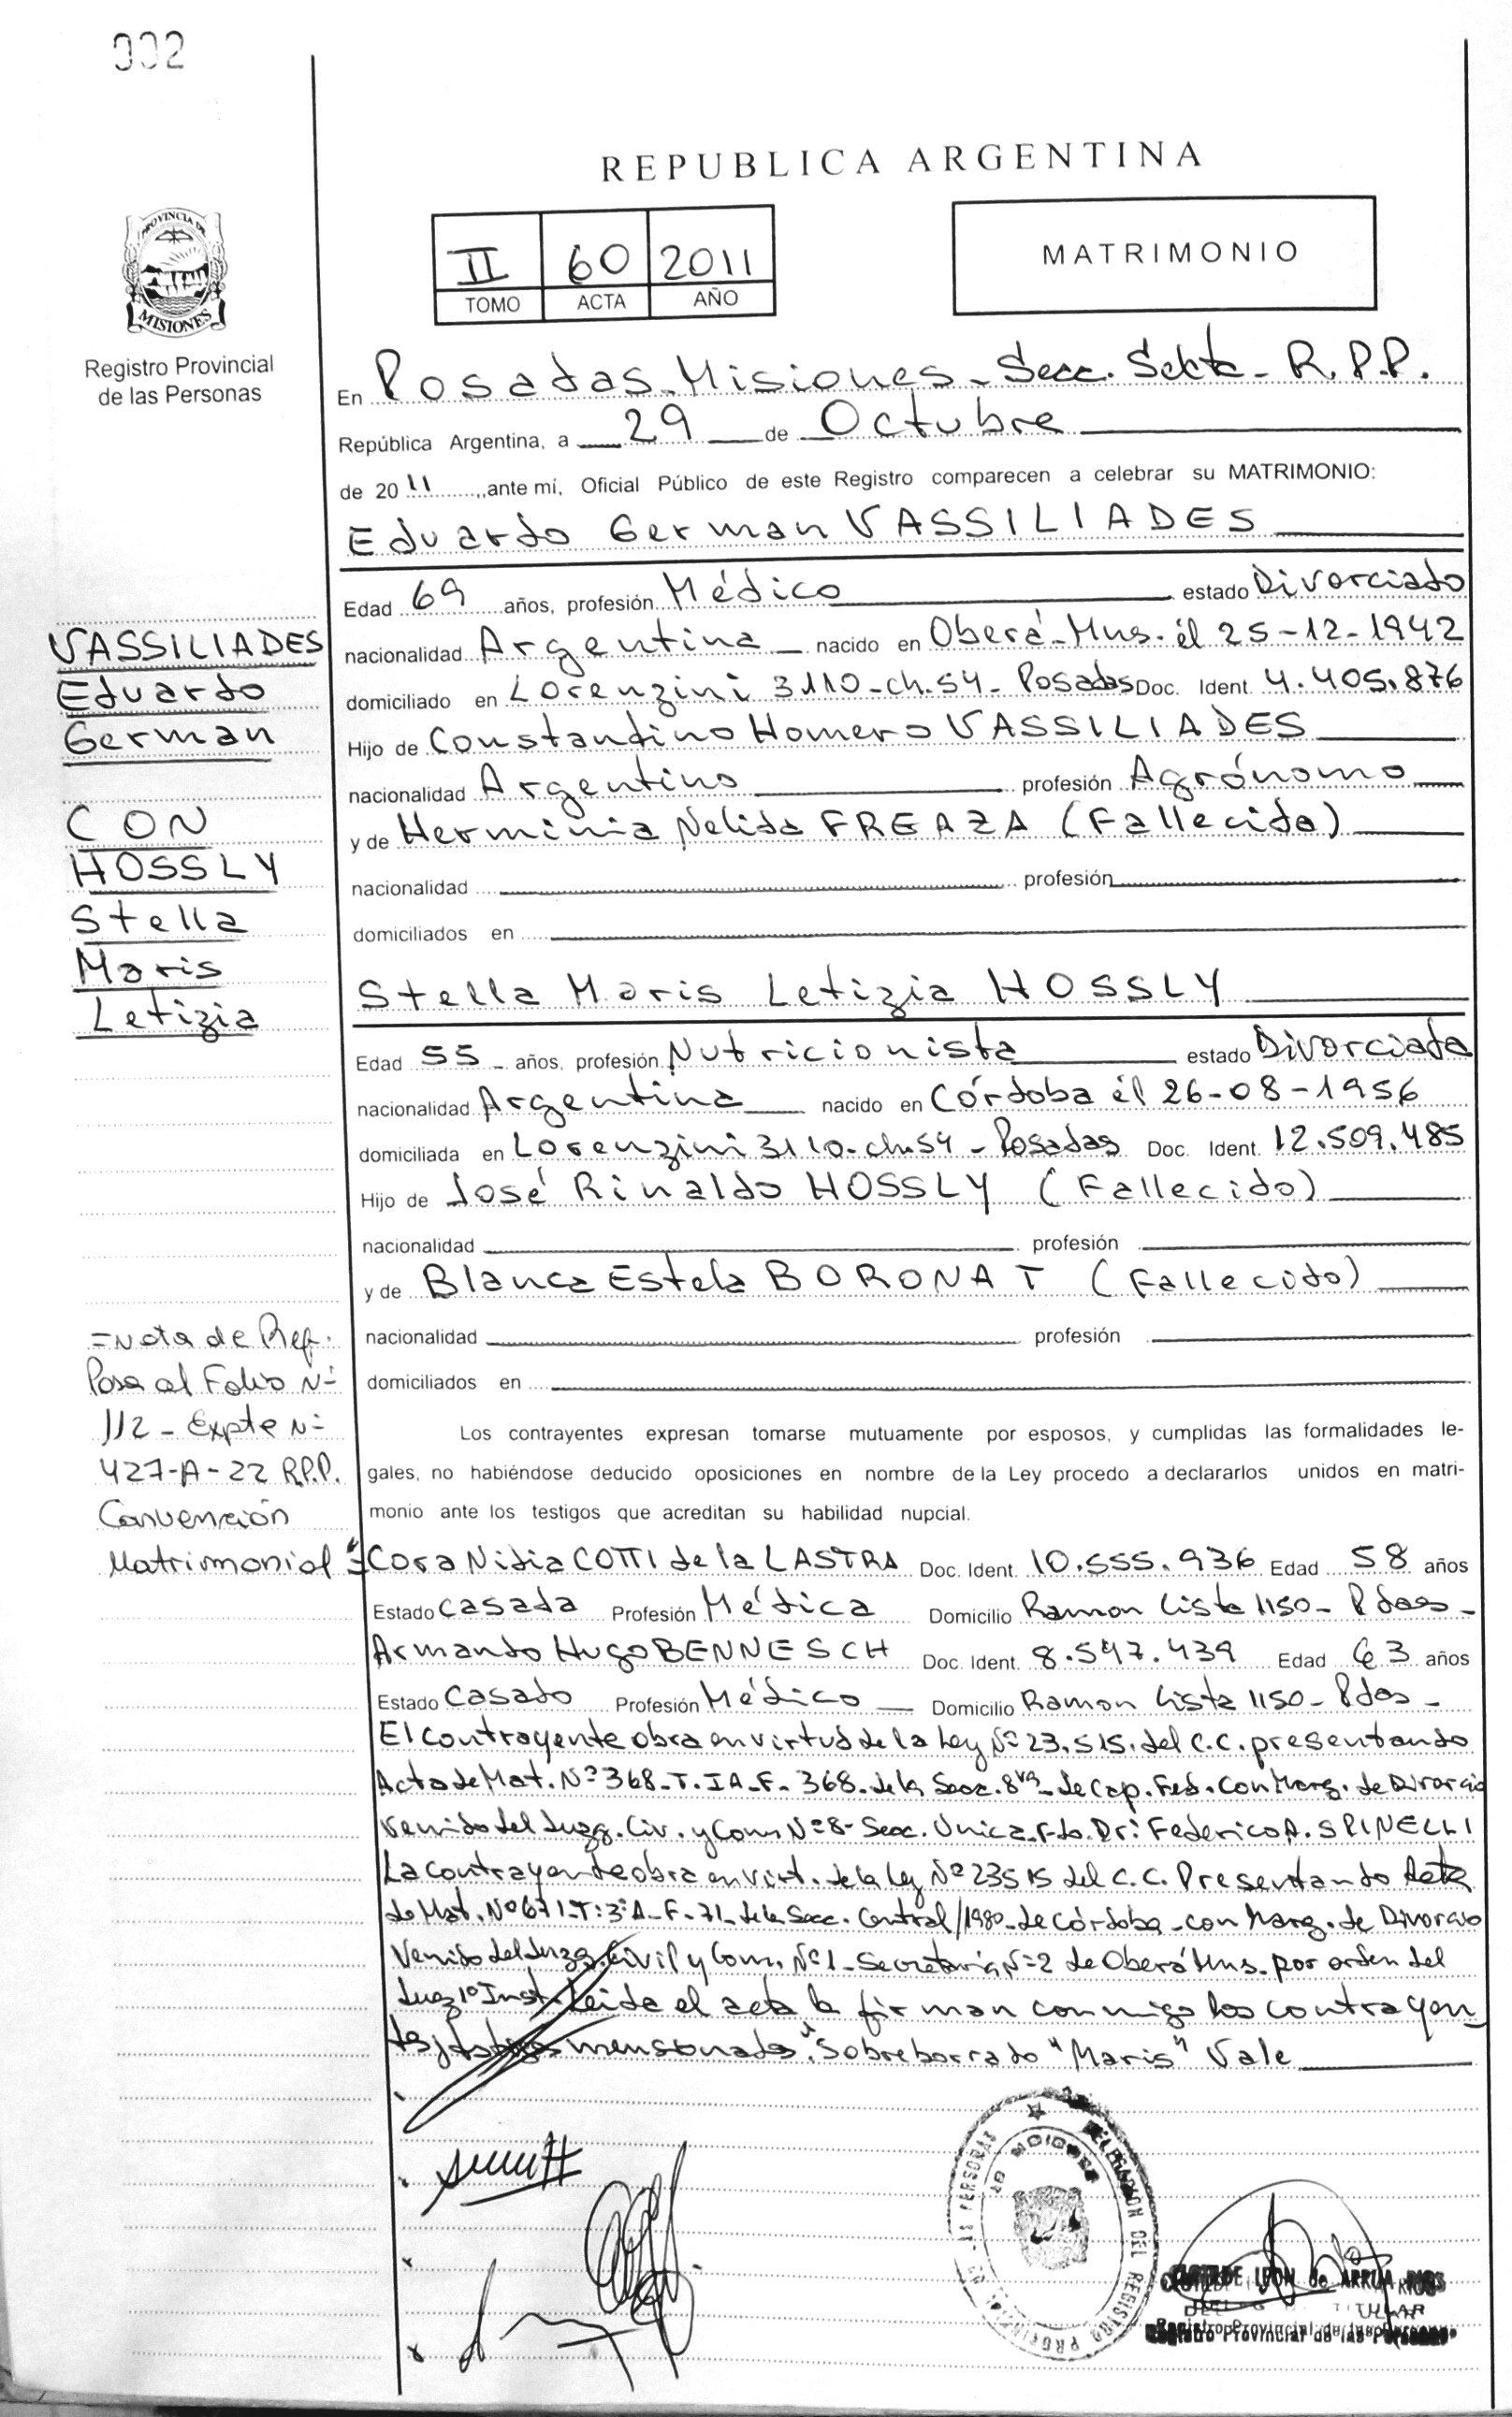 002
REPUBLICA ARGENTINA
PROVINCIA DE
MISIONES
Registro Provincial
de las Personas
II 60 2011
TOMO ACTA AÑO
MATRIMONIO
En Posadas-Misiones-Secc. Sexta-R.P.P.
República Argentina, a 29 de Octubre
de 2011, ante mí, Oficial Público de este Registro comparecen a celebrar su MATRIMONIO:
Eduardo German VASSILIADES
Edad 69 años, profesión Médico estado Divorciado
nacionalidad Argentina nacido en Oberá-Mns. él 25-12-1942
domiciliado en Lorenzini 3110-ch.54-Posadas Doc. Ident. 4.405.876
Hijo de Constantino Homero VASSILIADES
nacionalidad Argentino profesión Agrónomo
y de Herminia Nelida FREAZA (Fallecida)
nacionalidad profesión
domiciliados en
Stella Maris Letizia HOSSLY
Edad 55 años, profesión Nutricionista estado Divorciada
nacionalidad Argentina nacido en Córdoba él 26-08-1956
domiciliada en Lorenzini 3110-ch.54-Posadas Doc. Ident. 12.509.485
Hijo de José Rinaldo HOSSLY (Fallecido)
nacionalidad profesión
y de Blanca Estela BORONAT (Fallecido)
nacionalidad profesión
domiciliados en
Los contrayentes expresan tomarse mutuamente por esposos, y cumplidas las formalidades le-
gales, no habiéndose deducido oposiciones en nombre de la Ley procedo a declararlos unidos en matri-
monio ante los testigos que acreditan su habilidad nupcial.
Cora Nidia COTTI de la LASTRA Doc. Ident. 10.555.936 Edad 58 años
Estado Casada Profesión Médica Domicilio Ramon Lista 1150-Pdas-
Armando Hugo BENNESCH Doc. Ident. 8.547.439 Edad 63 años
Estado Casado Profesión Médico Domicilio Ramon Lista 1150-Pdas-
El contrayente obra en virtud de la Ley Nº 23.515. del C.C. presentando
Acta de Mat. Nº 368-T.IA-F-368-de la Secc. 8va-de Cap. Fed. con Marg. de Divorcio
Venido del Juzg. Civ. y Com Nº 8-Secc. Unica. Fdo. Dr: Federico A. SPINELLI
La contrayente obra en virt. de la Ley Nº 23515 del C.C. Presentando Acta
de Mat. Nº 671-T:3ºA-F-71-de la Secc. Central/1980-de Córdoba-con Marg. de Divorcio
Venido del Juzg. Civil y Com. Nº 1-Secretaria Nº 2 de Oberá Mns. por orden del
Juez 1º Inst. Leida el acta la firman conmigo los contrayen
tes y testigos mensionados. Sobreborrado "Maris" Vale
VASSILIADES
Eduardo
German
CON
HOSSLY
Stella
Maris
Letizia
=Nota de Ref.
Pasa al Folio Nº
112-Expte Nº
427-A-22 R.P.P.
Convención
Matrimonial=
DELEGACION DEL REGISTRO PROVINCIAL DE LAS PERSONAS
LEON de ARRUA RIOS
TITULAR
Registro Provincial de las Personas